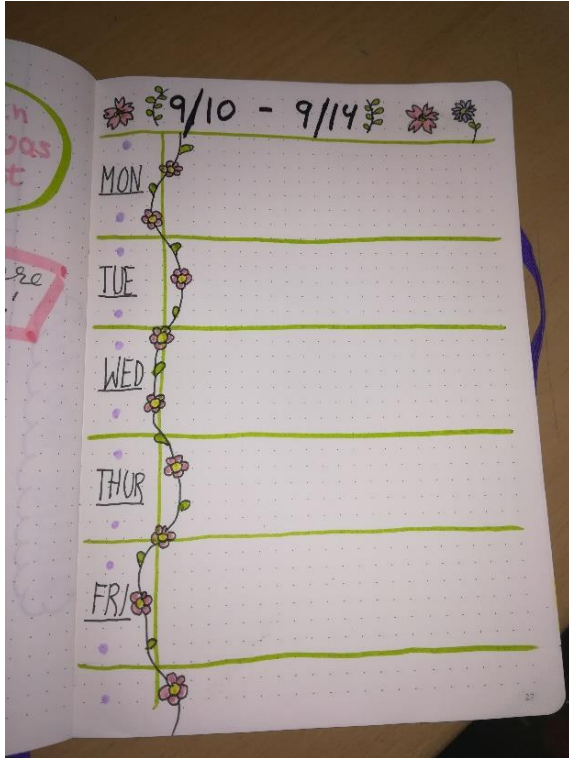 9/10 - 9/14
MON
TUE
WED
THUR
FRI
27